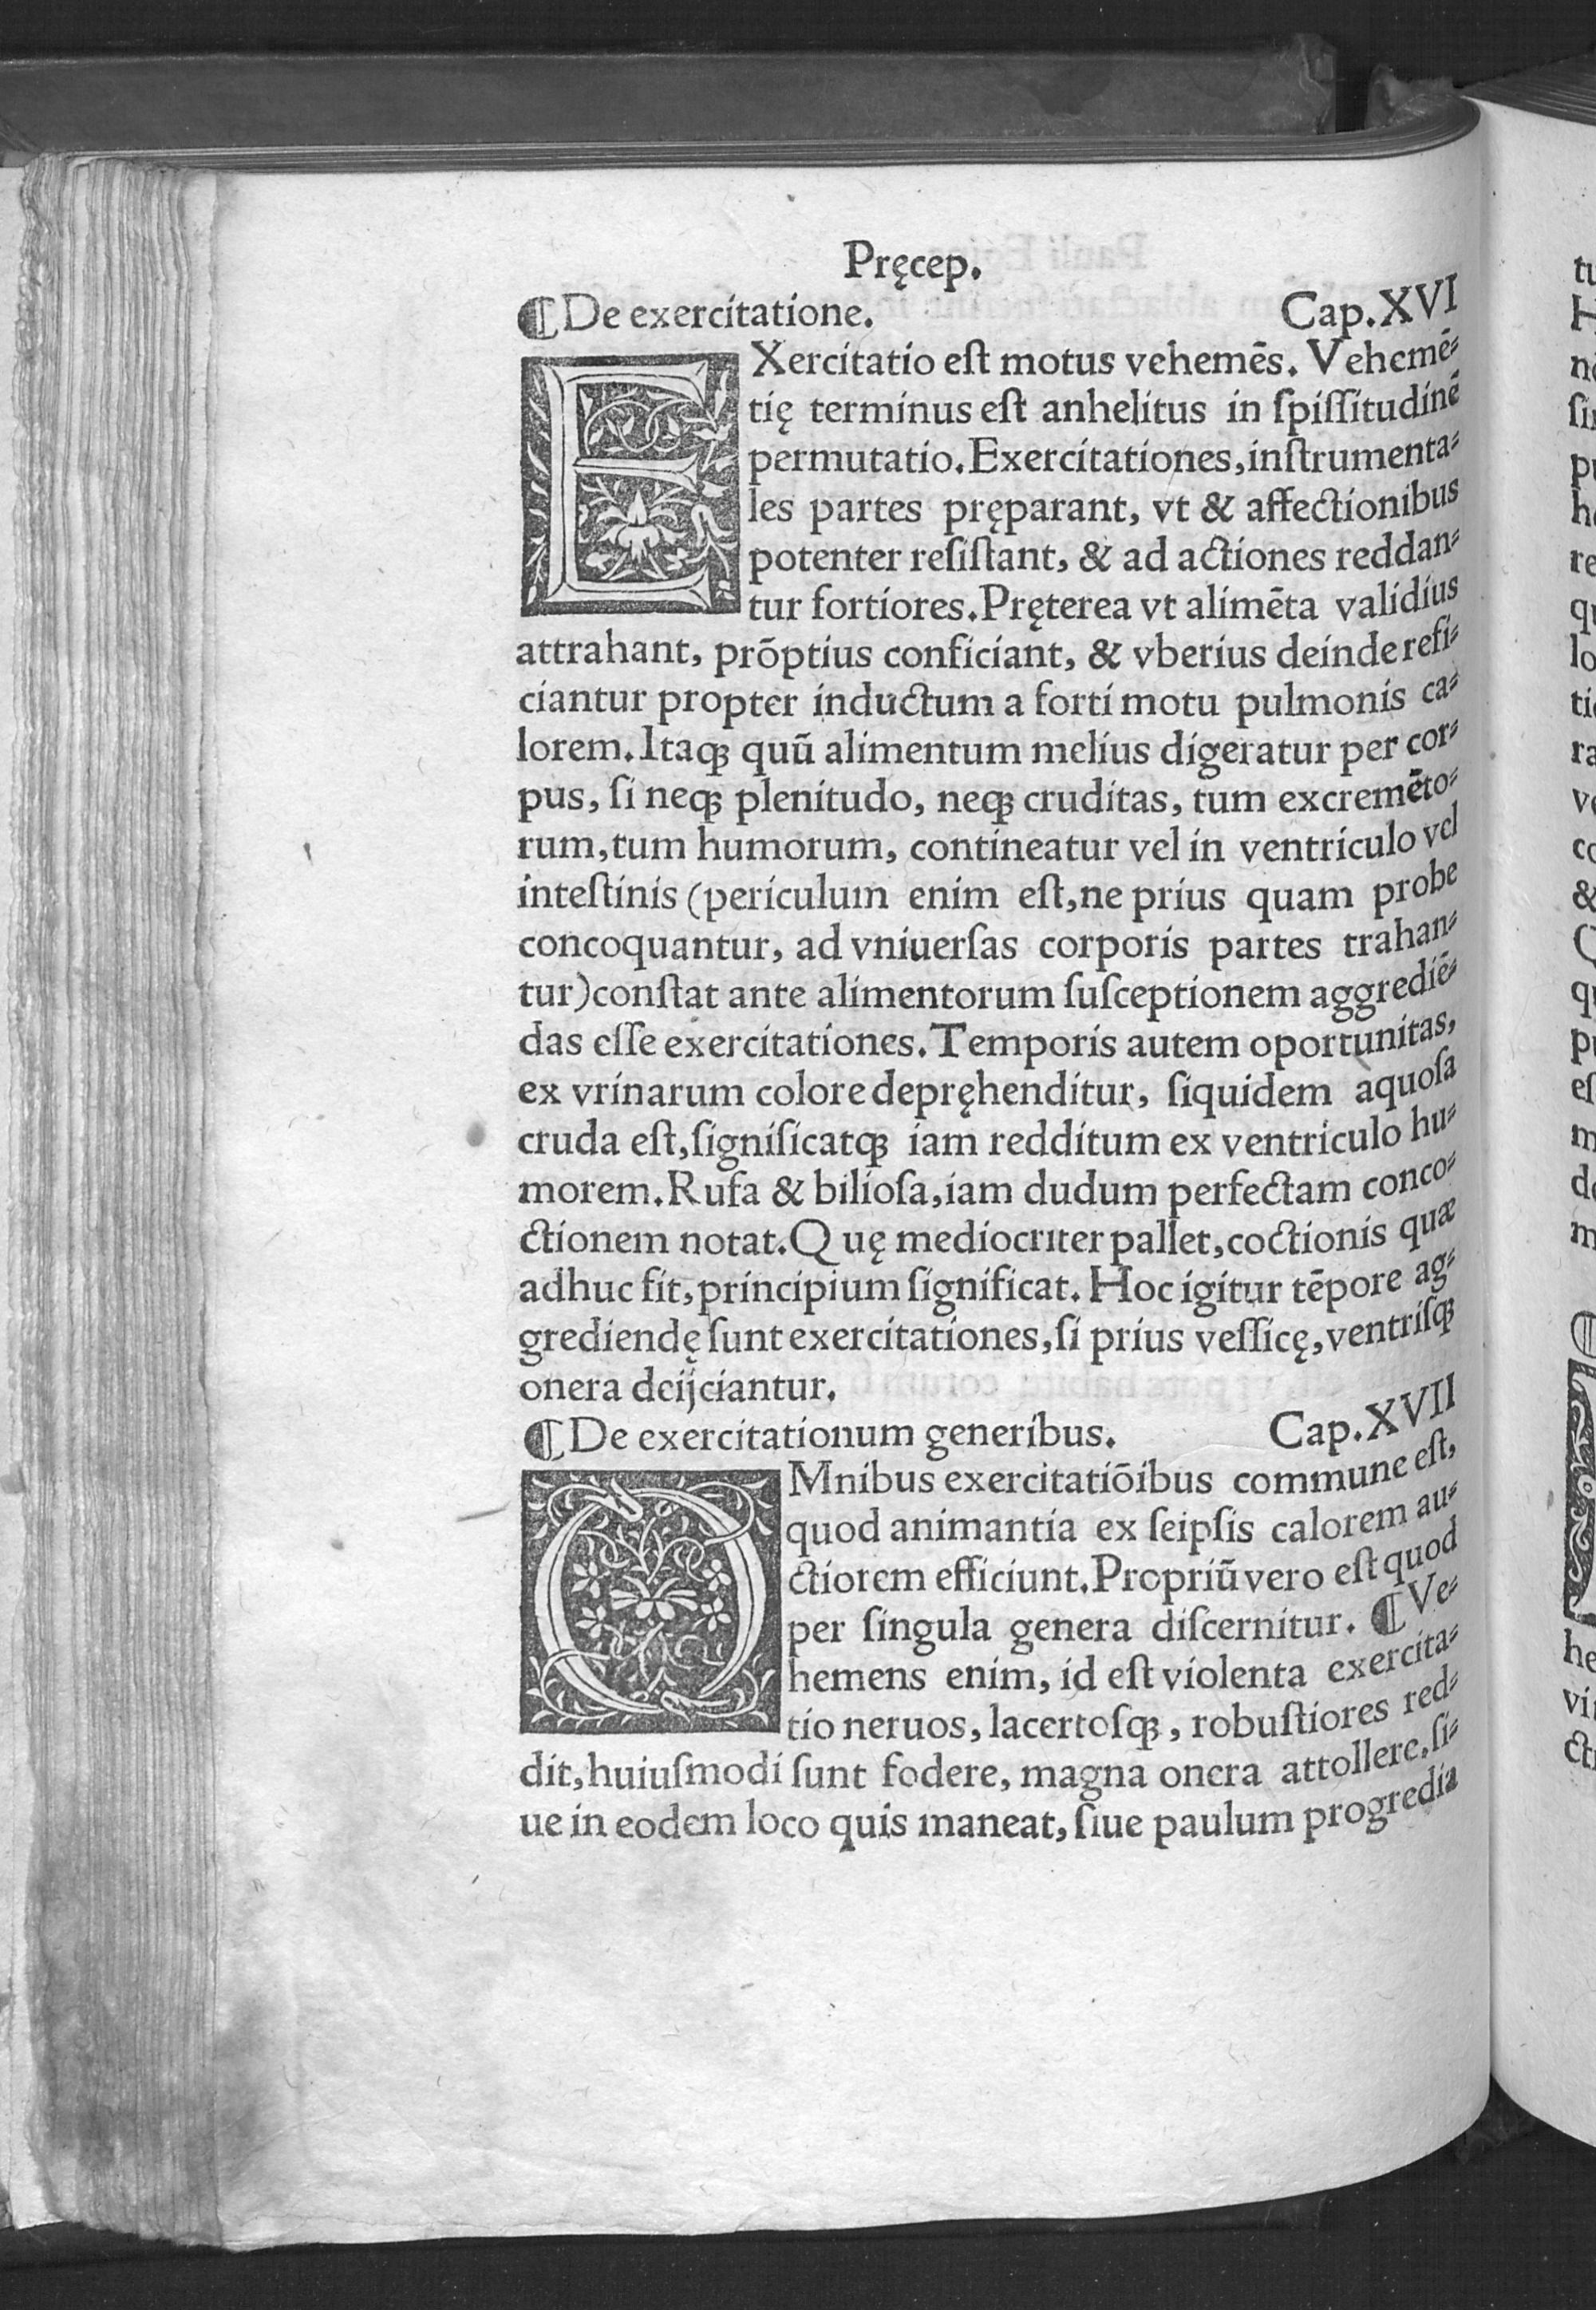 Pręcep.
¶De exercitatione. Cap.XVI
EXercitatio eſt motus vehemēs. Vehemē⸗
tię terminus eſt anhelitus in ſpiſſitudinē
permutatio.Exercitationes,inſtrumenta⸗
les partes pręparant, vt & affectionibus
potenter reſiſtant, & ad actiones reddan⸗
tur fortiores.Pręterea vt alimēta validius
attrahant, prōptius conficiant, & vberius deinde refi⸗
ciantur propter inductum a forti motu pulmonis ca⸗
lorem.Itaqꝫ quū alimentum melius digeratur per cor⸗
pus, ſi neqꝫ plenitudo, neqꝫ cruditas, tum excremēto⸗
rum,tum humorum, contineatur vel in ventriculo vel
inteſtinis (periculum enim eſt,ne prius quam probe
concoquantur, ad vniuerſas corporis partes trahan⸗
tur)conſtat ante alimentorum ſuſceptionem aggrediē⸗
das eſſe exercitationes.Temporis autem oportunitas,
ex vrinarum colore depręhenditur, ſiquidem aquoſa
cruda eſt,ſigniſicatqꝫ iam redditum ex ventriculo hu⸗
morem.Rufa & bilioſa,iam dudum perfectam conco⸗
ctionem notat.Quę mediocriter pallet,coctionis quæ
adhuc fit,principium ſignificat. Hoc igitur tēpore ag⸗
grediendę ſunt exercitationes,ſi prius veſſicę,ventriſqꝫ
onera deijciantur.
¶De exercitationum generibus. Cap.XVII
OMnibus exercitatiōibus commune eſt,
quod animantia ex ſeipſis calorem au⸗
ctiorem efficiunt.Propriū vero eſt quod
per ſingula genera diſcernitur. ¶Ve⸗
hemens enim, id eſt violenta exercita⸗
tio neruos, lacertoſqꝫ, robuſtiores red⸗
dit,huiuſmodi ſunt fodere, magna onera attollere,ſi⸗
ue in eodem loco quis maneat, ſiue paulum progredia